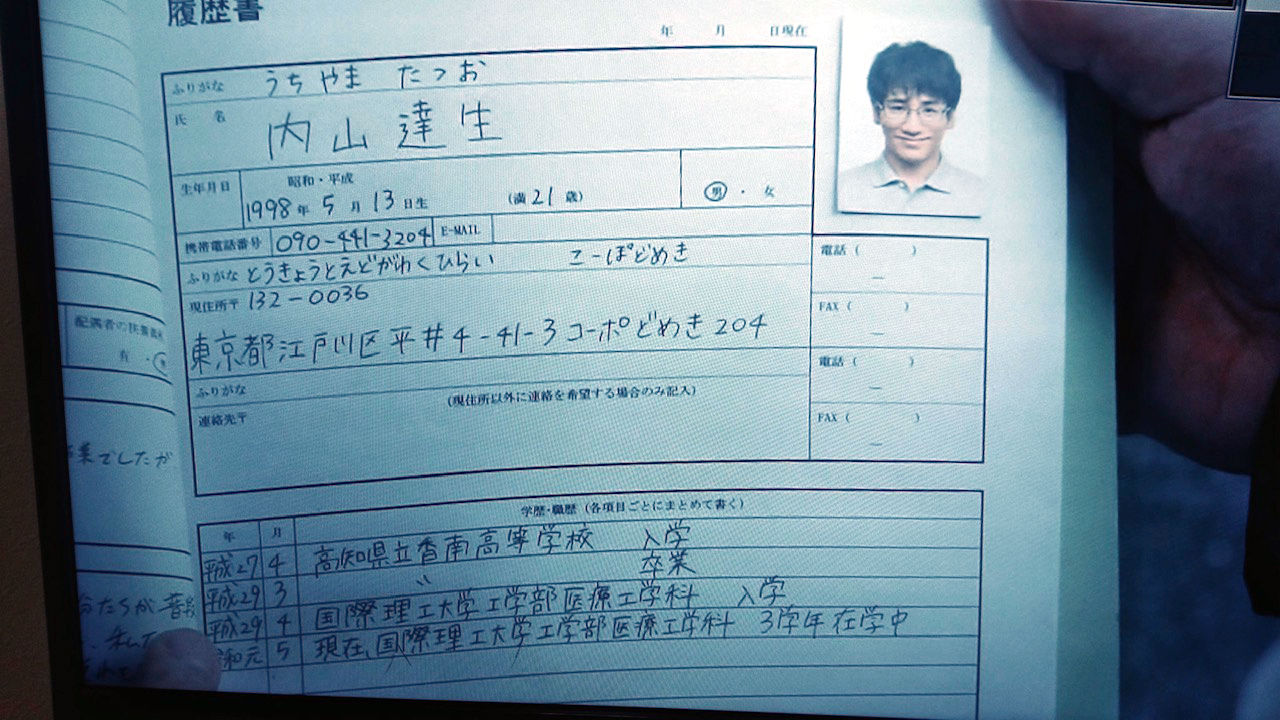 履歴書
年 月 日現在
ふりがな うちやま たつお
氏 名 内山達生
生年月日 昭和・平成
1998年 5月 13日生 (満 21 歳) 男・女
携帯電話番号 090-441-3204 E-MAIL
ふりがな とうきょうとえどがわくひらい こーぽどめき
現住所〒 132-0036
東京都江戸川区平井4-41-3 コーポどめき204
ふりがな
(現住所以外に連絡を希望する場合のみ記入)
連絡先〒
電話( )
—
FAX( )
—
電話( )
—
FAX( )
—
学歴・職歴(各項目ごとにまとめて書く)
年 月
平成27 4 高知県立香南高等学校 入学
平成29 3 〃 卒業
平成29 4 国際理工大学工学部医療工学科 入学
和元 5 現在、国際理工大学工学部医療工学科 3学年在学中
配偶者の扶養義務
有・
業でしたが
たちが普段